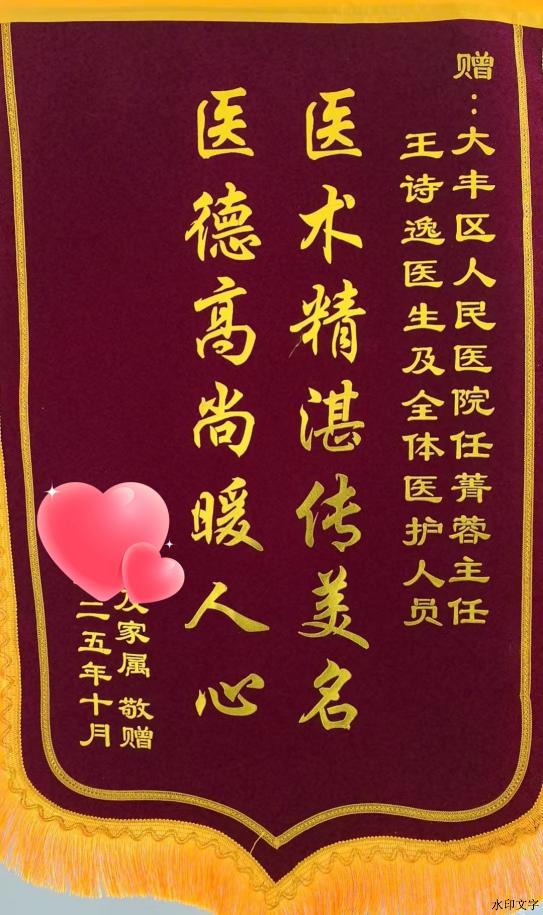 赠：大丰区人民医院任菁蓉主任
王诗逸医生及全体医护人员
医术精湛传美名
医德高尚暖人心
及家属 敬赠
二五年十月
水印文字